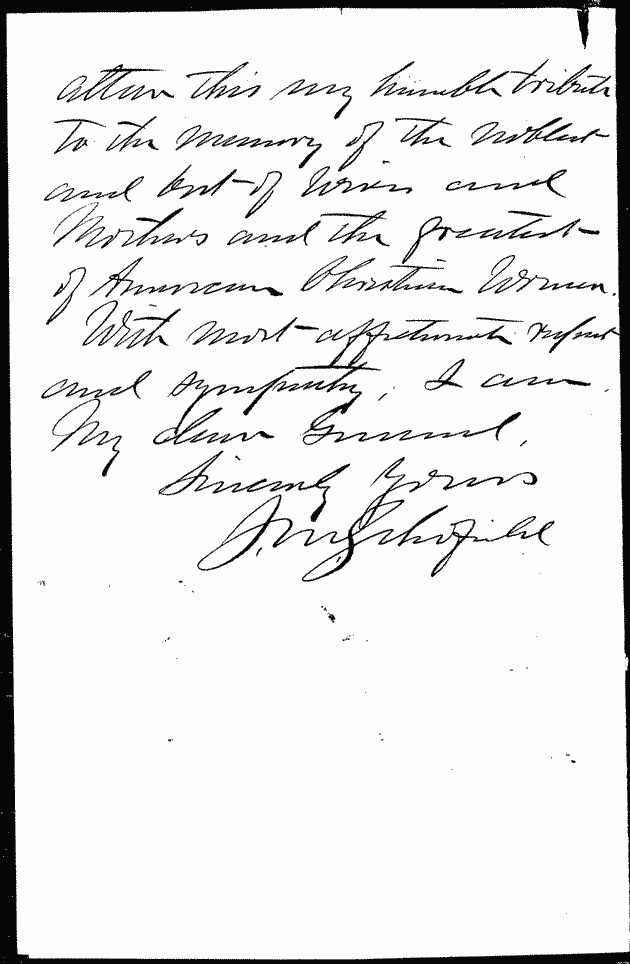 this my humble tribute
to the memory of the noblest
and best of Wives and
Mothers and the greatest
of American Christian Women.
With most affectionate respect
and sympathy, I am,
My dear General,
Sincerely Yours
J. M. Schofield